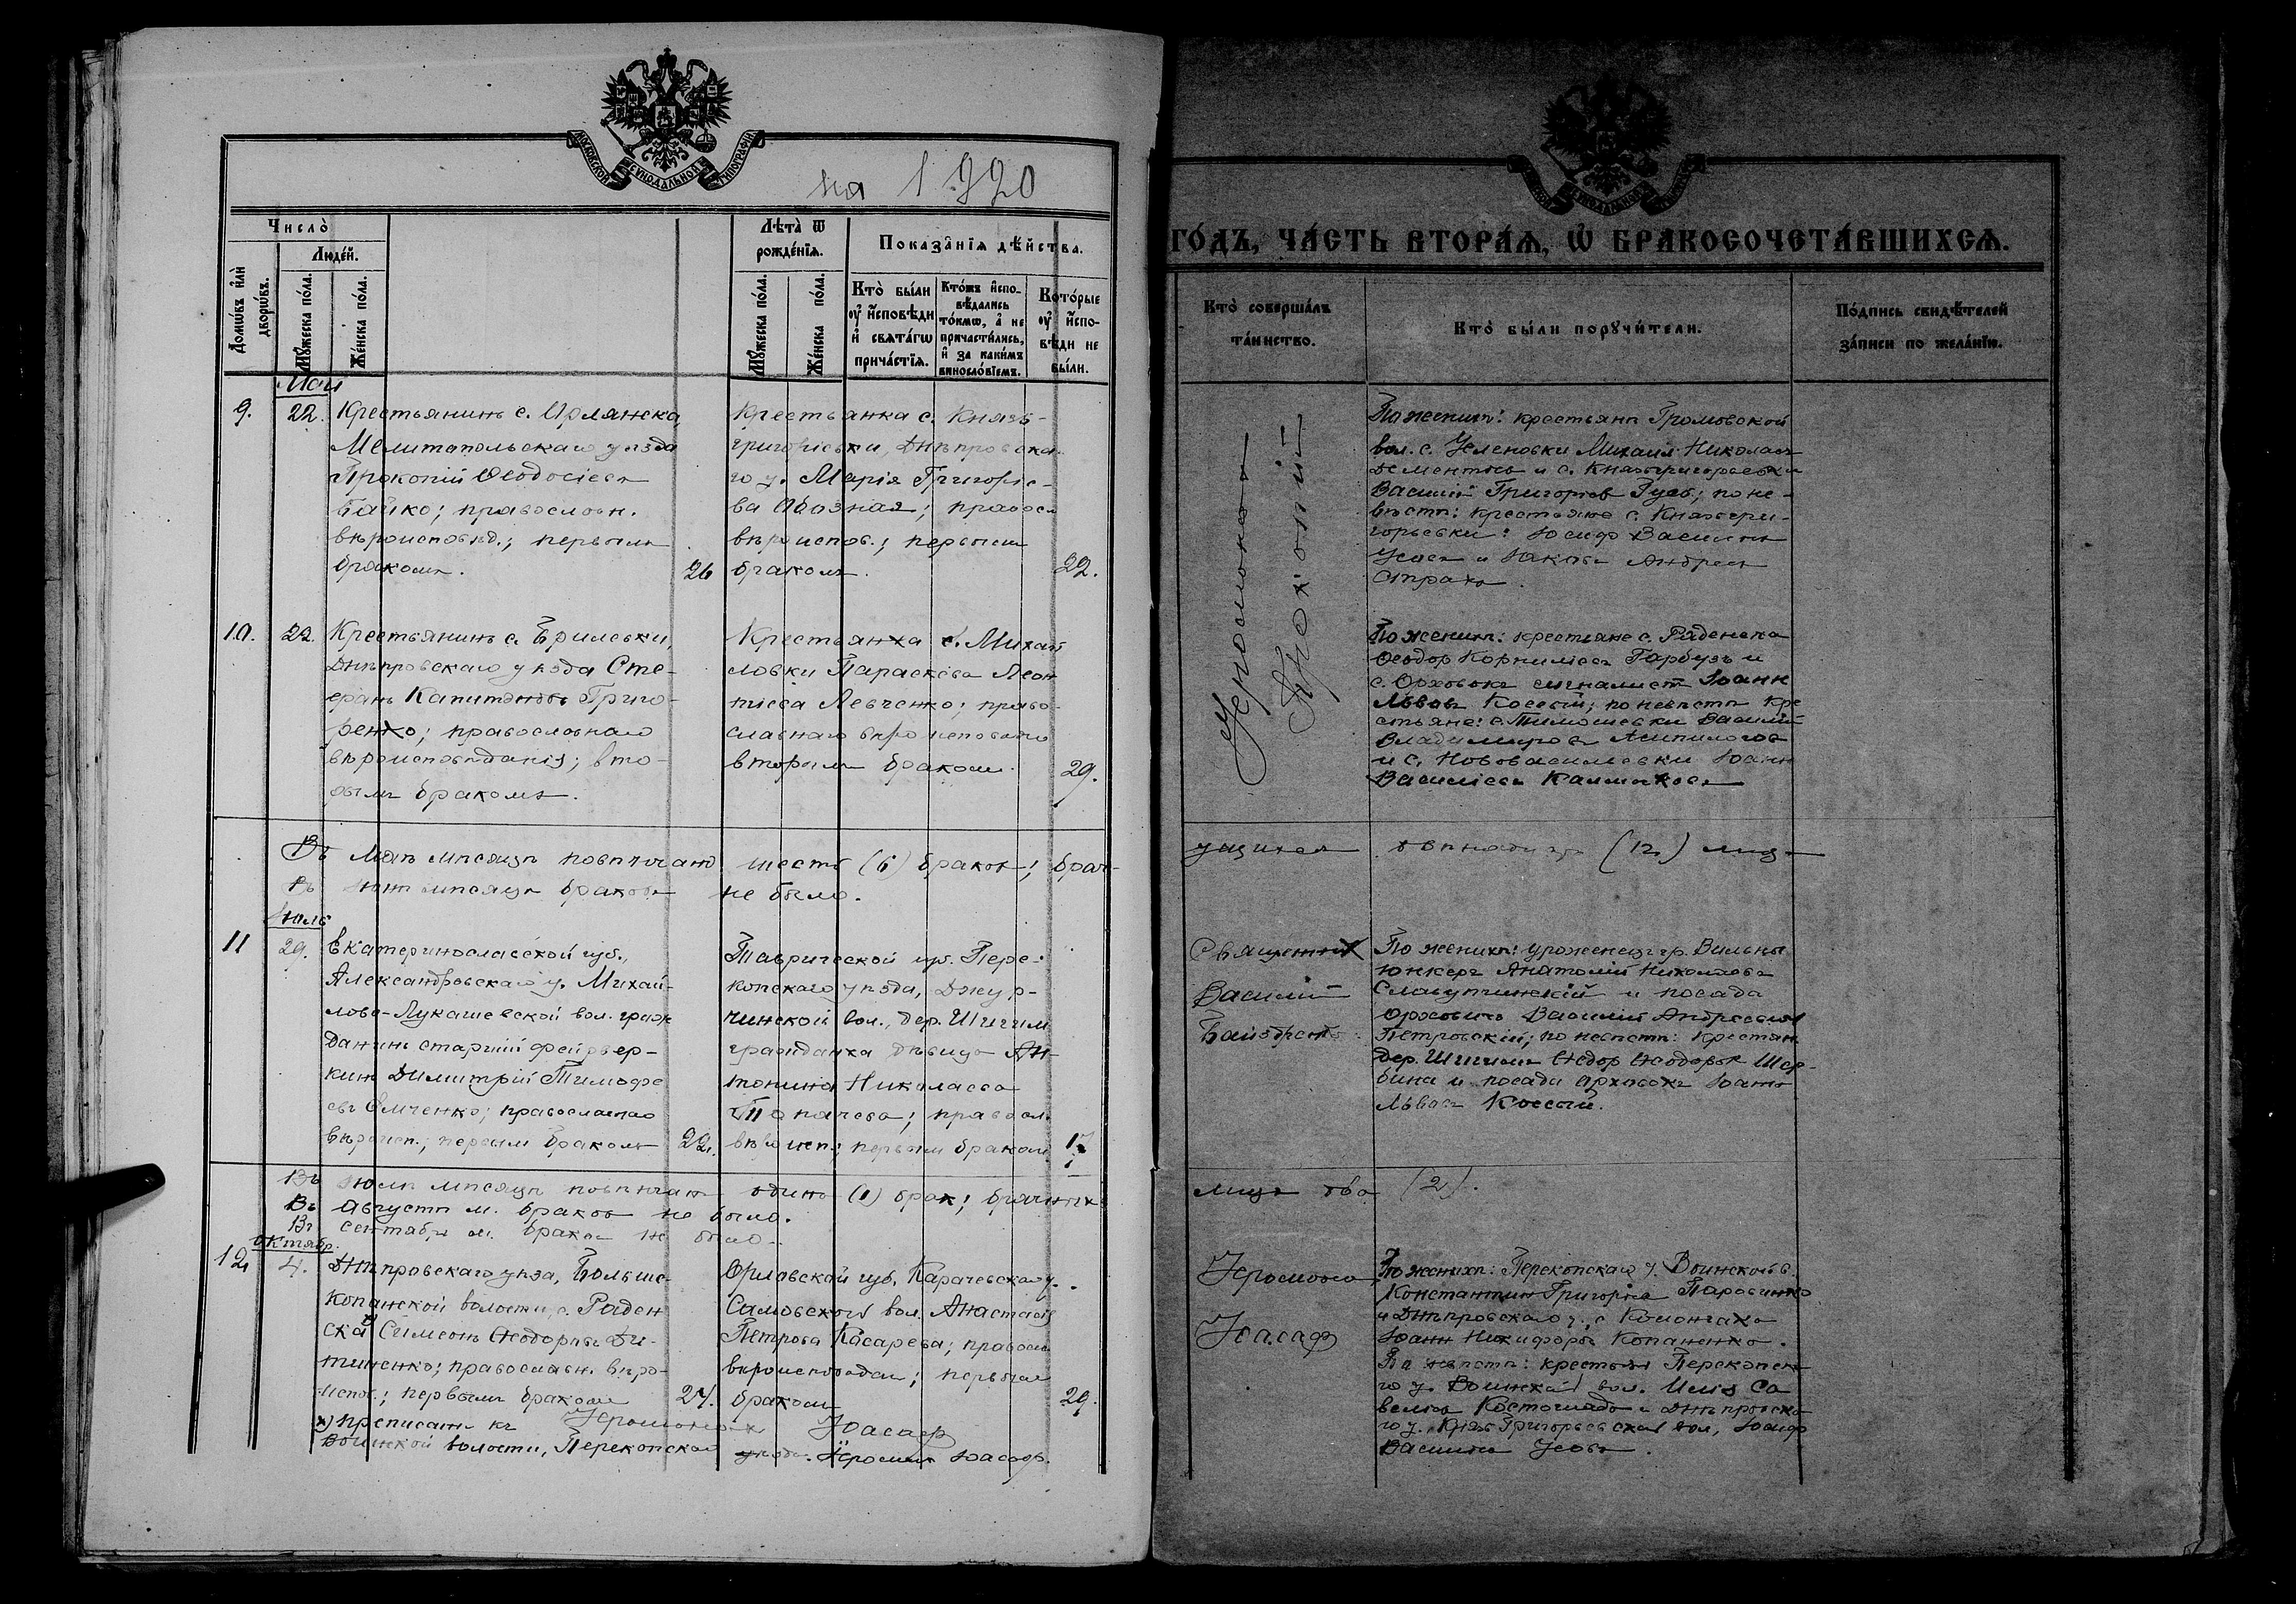 МОСКОВСКОЙ СѴНОДАЛЬНОЙ ТИПОГРАФІИ
на 1920
Число̀
Людей.
Домѡвъ и҆лѝ дворѡ́въ.
Мꙋ́жеска по́ла.
Же́нска по́ла.
Лѣта̀ ѿ рожде́нїѧ.
Мꙋ́жеска по́ла.
Же́нска по́ла.
Показа̂нїѧ дѣ́йства.
Кто̀ бы́ли ᲂу҆ и҆сповѣ́ди и҆ свѧта́гѡ прича́стїѧ.
Кто́жъ и҆сповѣ́дались то́кмѡ, а҆ не причасти́лись, и҆ за каки́мъ винособїемъ.
Кото́рые ᲂу҆ и҆сповѣ́ди не бы́ли.
Май
9. 22. Крестьянинъ с.
Мелитопольскаго уѣзда
Прокопій Ѳеодосіевъ
Байко; православн.
вѣроисповѣд.; первымъ
бракомъ. 26
Крестьянка с. Князь-
григорьевки, Днѣпровска-
го у. Марія Григоріе-
ва Обозная; правосл.
вѣроиспов.; первымъ
бракомъ. 22.
10. 22. Крестьянинъ с. Брилевки,
Днѣпровскаго уѣзда Сте-
фанъ Капитоновъ Григо-
ренко; православнаго
вѣроисповѣданія; вто-
рымъ бракомъ.
Крестьянка с. Михай
ловки Параскева Леон
тіева Левченко; право-
славнаго вѣроисповѣд
вторымъ бракомъ. 29.
Въ маѣ мѣсяцѣ повѣнчано шесть (6) браковъ; брач-
Въ іюнѣ мѣсяцѣ браковъ не было.
Іюль
11 29. Екатеринославской губ.,
Александровскаго у. Михай-
лово-Лукашевской вол. граж
данинъ старшій фейервер-
керъ Димитрій Тимофе
евъ Емченко; православнаго
вѣроисп.; первым бракомъ 22.
Таврической губ. Пере-
копскаго уѣзда, Джур-
чинской вол., дер. Шигим
гражданка дѣвица Ан-
тонина Николаева
Топачева; правосл.
вѣроисп.; первым бракомъ 17
Въ іюлѣ мѣсяцѣ повѣнчанъ одинъ (1) брак; брачных
Въ августѣ м. браков не было.
Въ сентябрѣ м. браков не было.
октябр.
12 4. Днѣпровскаго уѣза, Больше-
Копанской волости, с. Раден
ска Симеонъ Ѳеодоровъ
православн. вѣро-
испов.; первымъ бракомъ 27.
Орловской губ, Карачевскаго у.
вол. Анастасія
Петрова Косарева; правосл
вѣроисповедан; первымъ
бракомъ 29.
х) приписанъ къ
Воинской волости, Перекопскаго уѣзда. Іеромонахъ Іоасафъ.
Іеромонахъ Іоасаф
ГО́ДЪ, ЧА́СТЬ ВТОРА́Ѧ, Ѡ҆ БРАКОСОЧЕТА́ВШИХСѦ.
Кто̀ соверша́лъ та́инство.
Кто̀ бы́ли порꙋчи́тели.
По́дпись свидѣ́телей за́писи по жела́нїю.
Іеромонахъ
Прокопій
По женихѣ: крестьян Громовской
вол. с. Михаил Николаевъ
Дементьев и с. Князьгригорьевки
Василій Григорьев по не-
вѣстѣ: крестьяне с. Князьгри-
горьевки: Іосиф Васильевъ
Усовъ и Іаковъ Андреевъ
Страхъ.
По женихѣ: крестьяне с. Раденска
Ѳеодор Корниліевъ Гарбузъ и
с. сигналист Іоанн
Львовъ Коссый; по невѣстѣ кре
стьяне: с. Тимошевки Василій
Владимировъ
и с. Нововасилевки Іоанн
Василіевъ Калмыковъ
ущихся двѣнадцать (12) лицъ
Священник
Василій
По женихѣ: уроженец гр. Вильны
юнкеръ Анатолій Николаевъ
и посада
Василій Андреевъ
Петровскій; по невѣстѣ: крестьян.
дер. Шигим Ѳедор Ѳеодоров Щер-
бина и посада Іоанн
Львовъ Коссый.
лицъ два (2).
Іеромонах
Іоасаф
По женихѣ: Перекопскаго у. Воинской в.
Константин Григорьев
и Днѣпровскаго у., с.
Іоанн Никифоровъ Копаненко.
По невѣстѣ: крестьян Перекопска
го у. Воинской вол. Илія Са
вельев и Днѣпровска
го у. Князь Григорьевской вол, Іосиф
Васильев Усовъ.